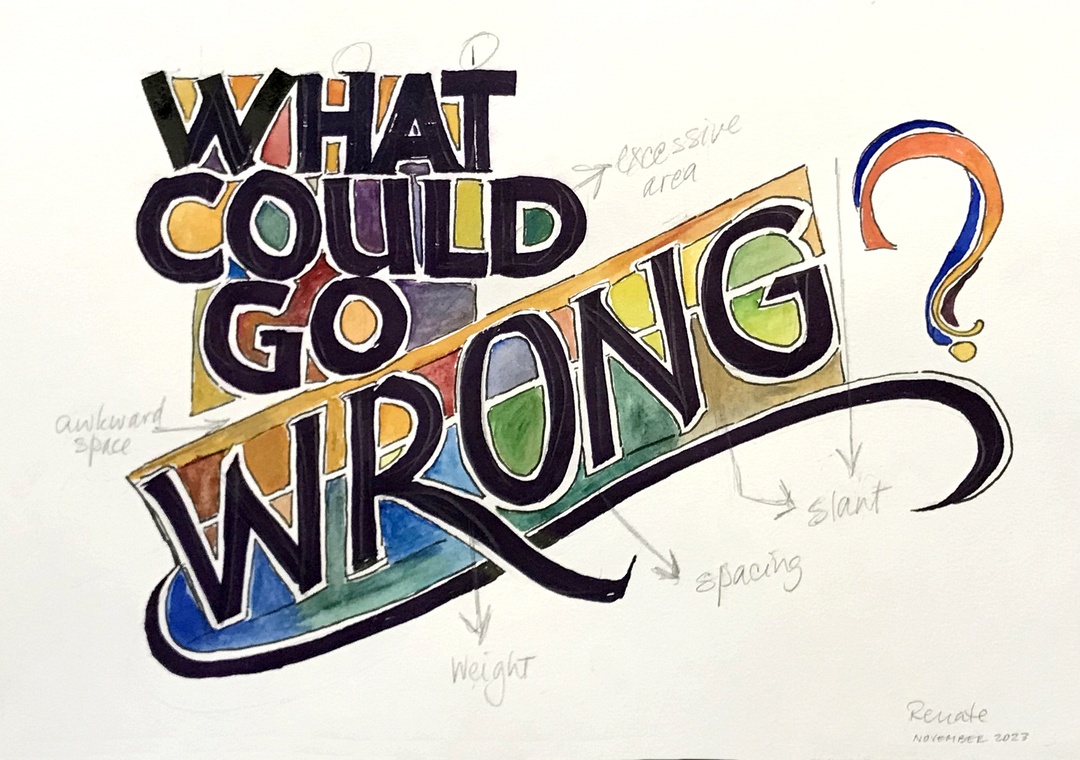 WHAT
COULD
GO
WRONG?
excessive
area
awkward
space
slant
spacing
Weight
Renate
NOVEMBER 2023